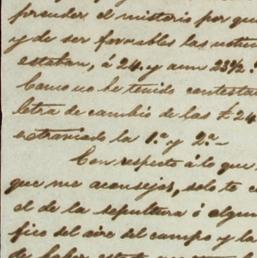 prender el misterio por que
y de ser favorables las notici
estaban, á 24. y aun 23½.
Como no he tenido contestac
letra de cambio de las £ 24
estraviado la 1.ª y 2.ª
Con respecto á lo que
que me aconsejas, solo te c
el de la sepultura ó algun
fico del aire del campo y la